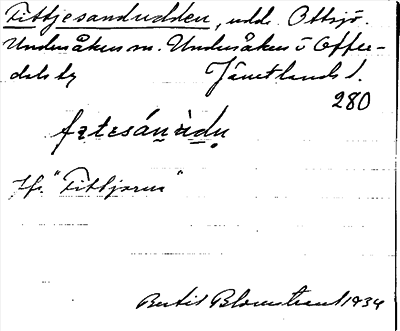 Fittjesandudden, udde. Ottsjö.
Undersåkers sn. Undersåkers o Offer-
dals tg Jämtlands l.
280
fɛtɛsánu̇̀du
Jfr. "Fittjorna"
Bertil Blomstrand 1934